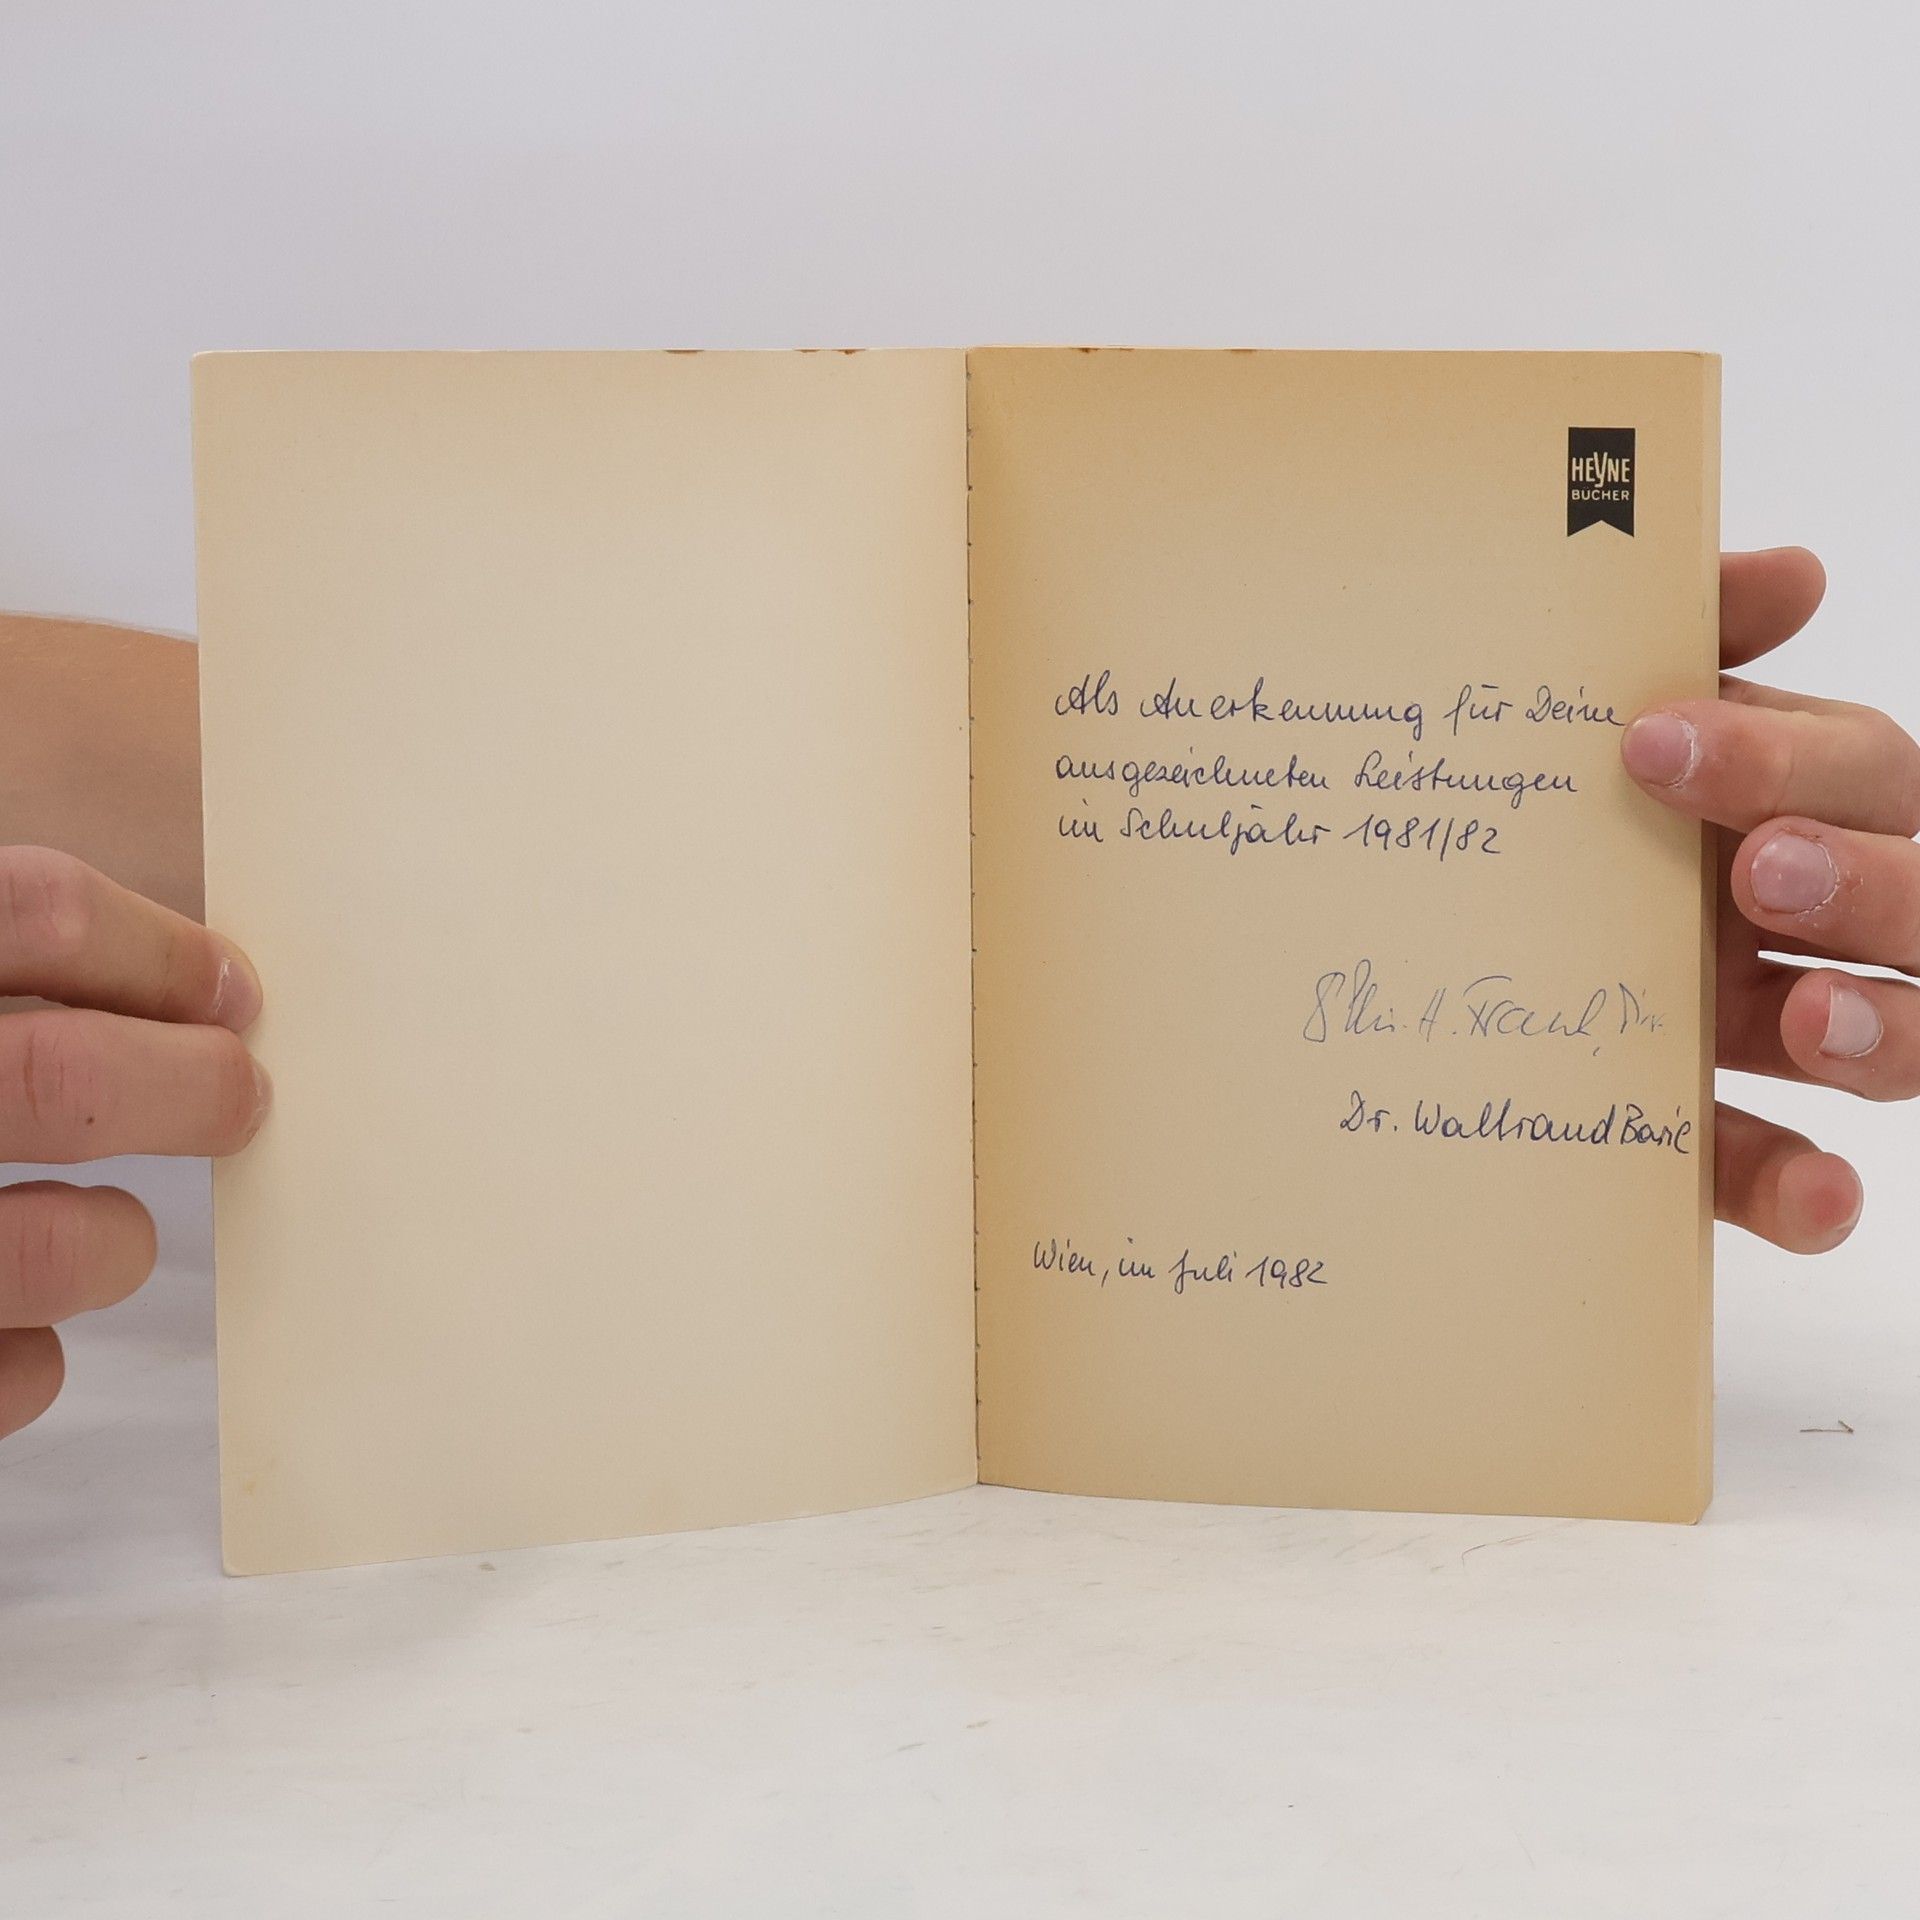 HEYNE
BÜCHER
Als Anerkennung für Deine
ausgezeichneten Leistungen
im Schuljahr 1981/82
H. Frank, Dir.
Dr. Waltraud
Wien, im Juli 1982